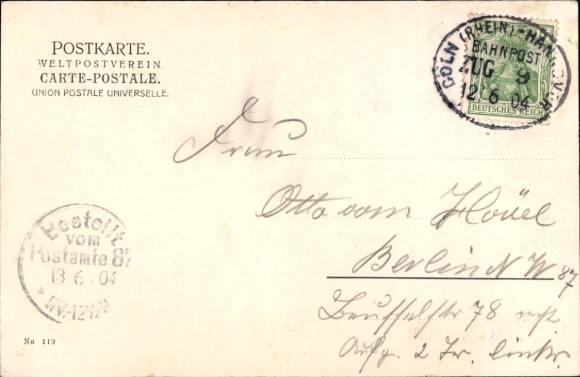 POSTKARTE.
WELTPOSTVEREIN.
CARTE-POSTALE.
UNION POSTALE UNIVERSELLE.
CÖLN (RHEIN)-HANNOVER
BAHNPOST
ZUG 9
12.6.04
DEUTSCHES REICH
Frau
Otto vom Hövel
Berlin N W 87
Beusselstr 78
Aufg. 2 Tr. links.
Bestellt
vom
Postamte 87
13 6 . 04
No 119